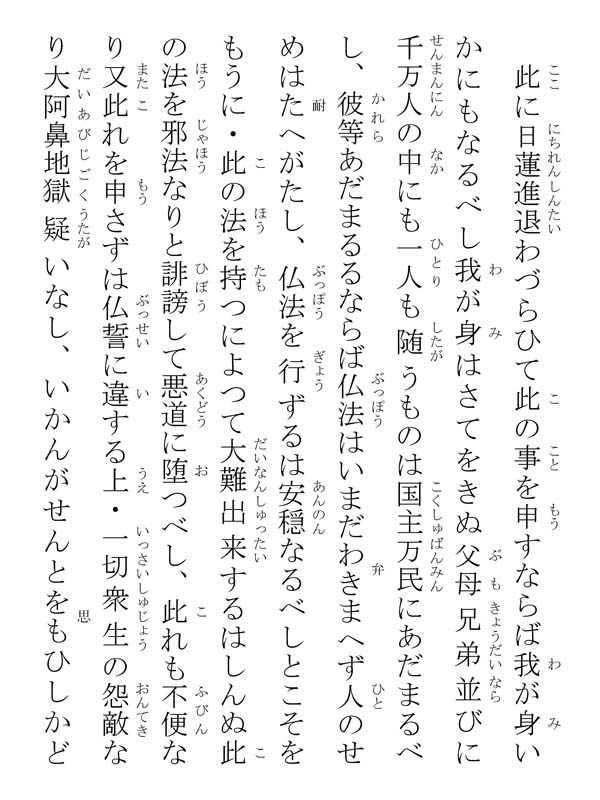 此に日蓮進退わづらひて此の事を申すならば我が身い
かにもなるべし我が身はさてをきぬ父母兄弟並びに
千万人の中にも一人も随うものは国主万民にあだまるべ
し、彼等あだまるるならば仏法はいまだわきまへず人のせ
めはたへがたし、仏法を行ずるは安穏なるべしとこそを
もうに・此の法を持つによつて大難出来するはしんぬ此
の法を邪法なりと誹謗して悪道に堕つべし、此れも不便な
り又此れを申さずは仏誓に違する上・一切衆生の怨敵な
り大阿鼻地獄疑いなし、いかんがせんとをもひしかど